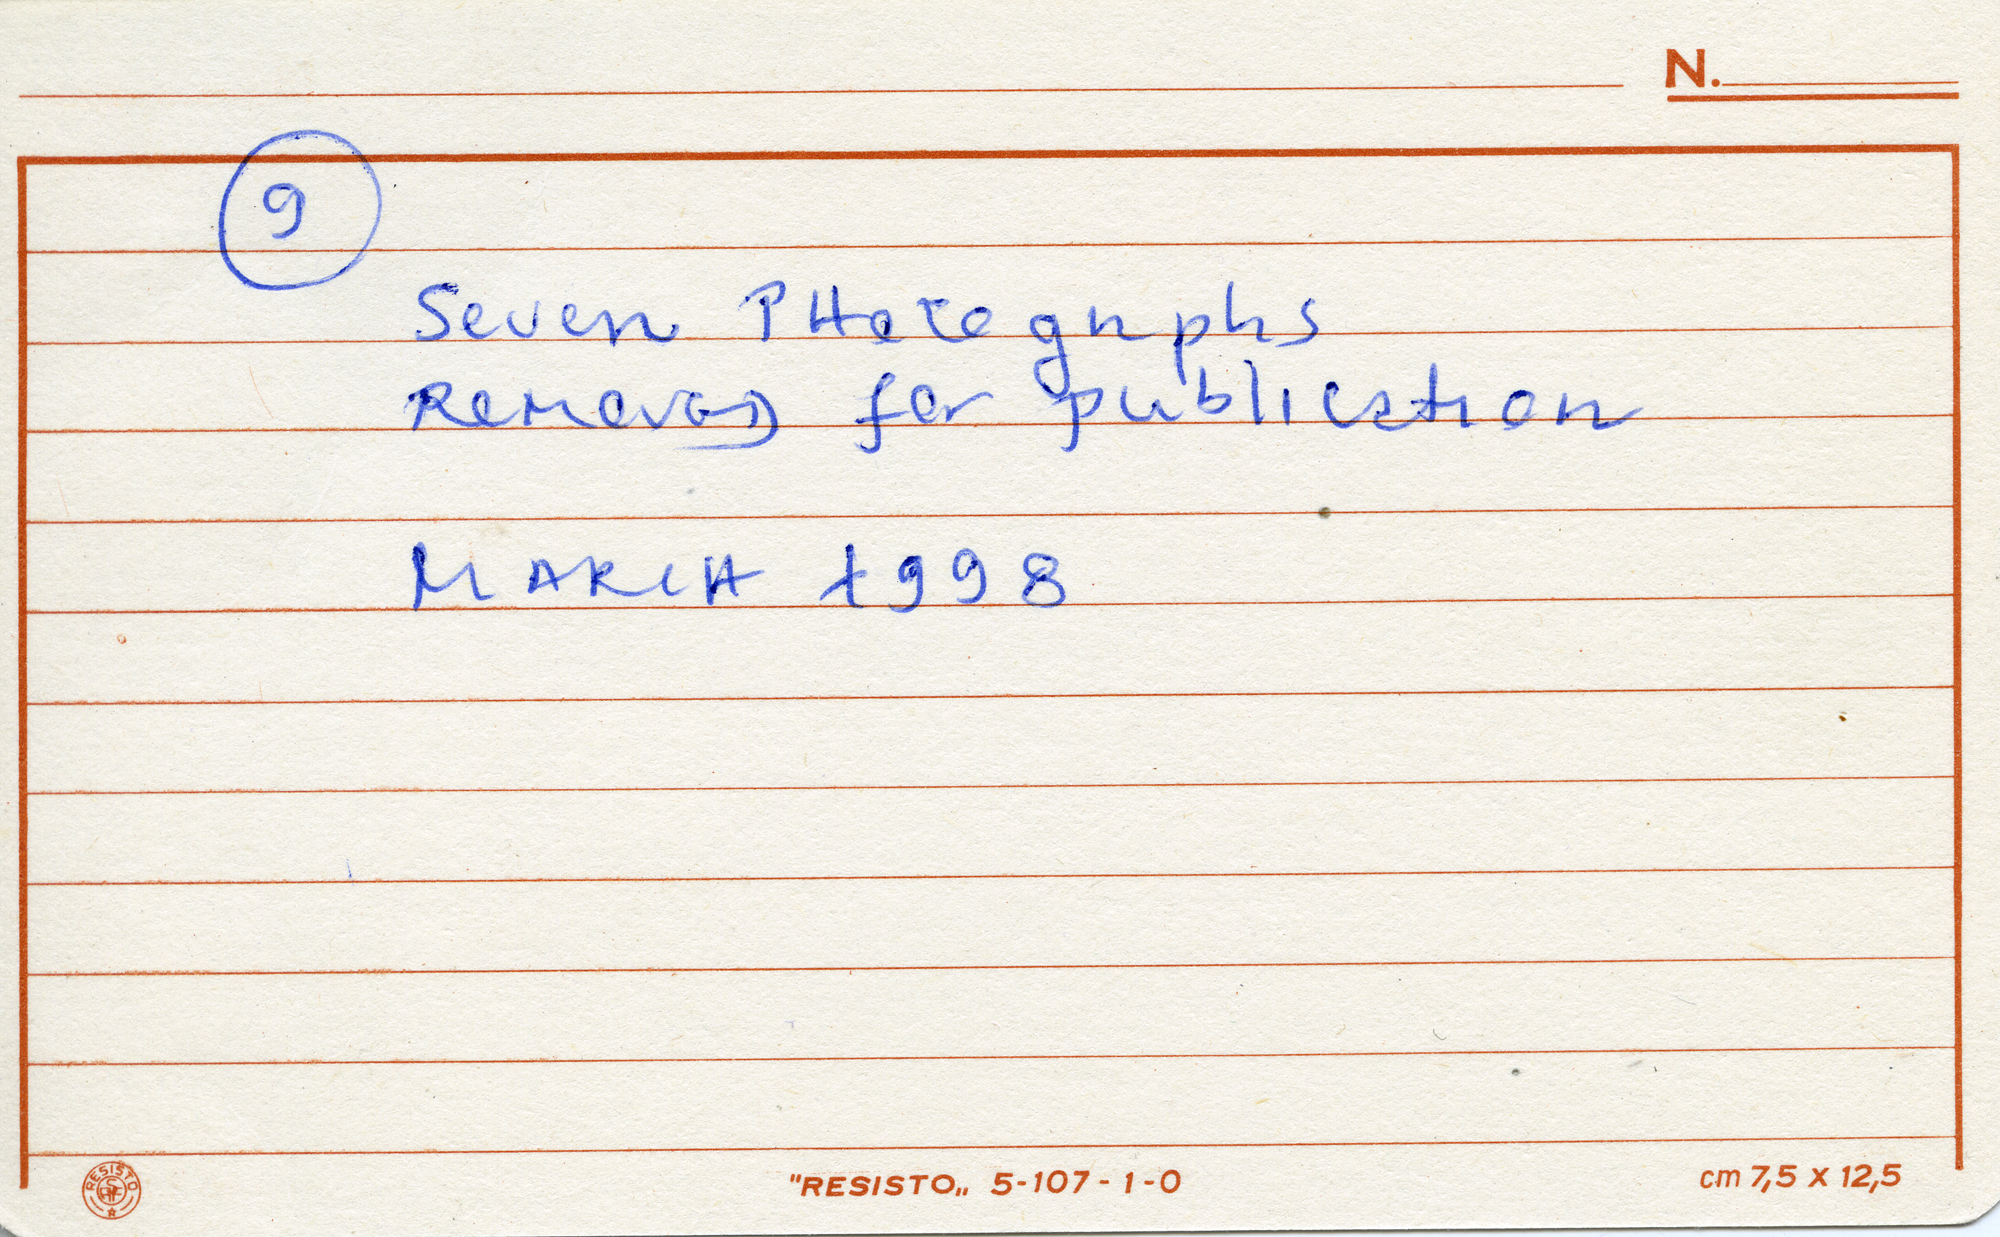 N.
9
Seven PHotographs
Removed for publication
MARCH 1998
RESISTO
"RESISTO„ 5-107-1-0
cm 7,5 x 12,5